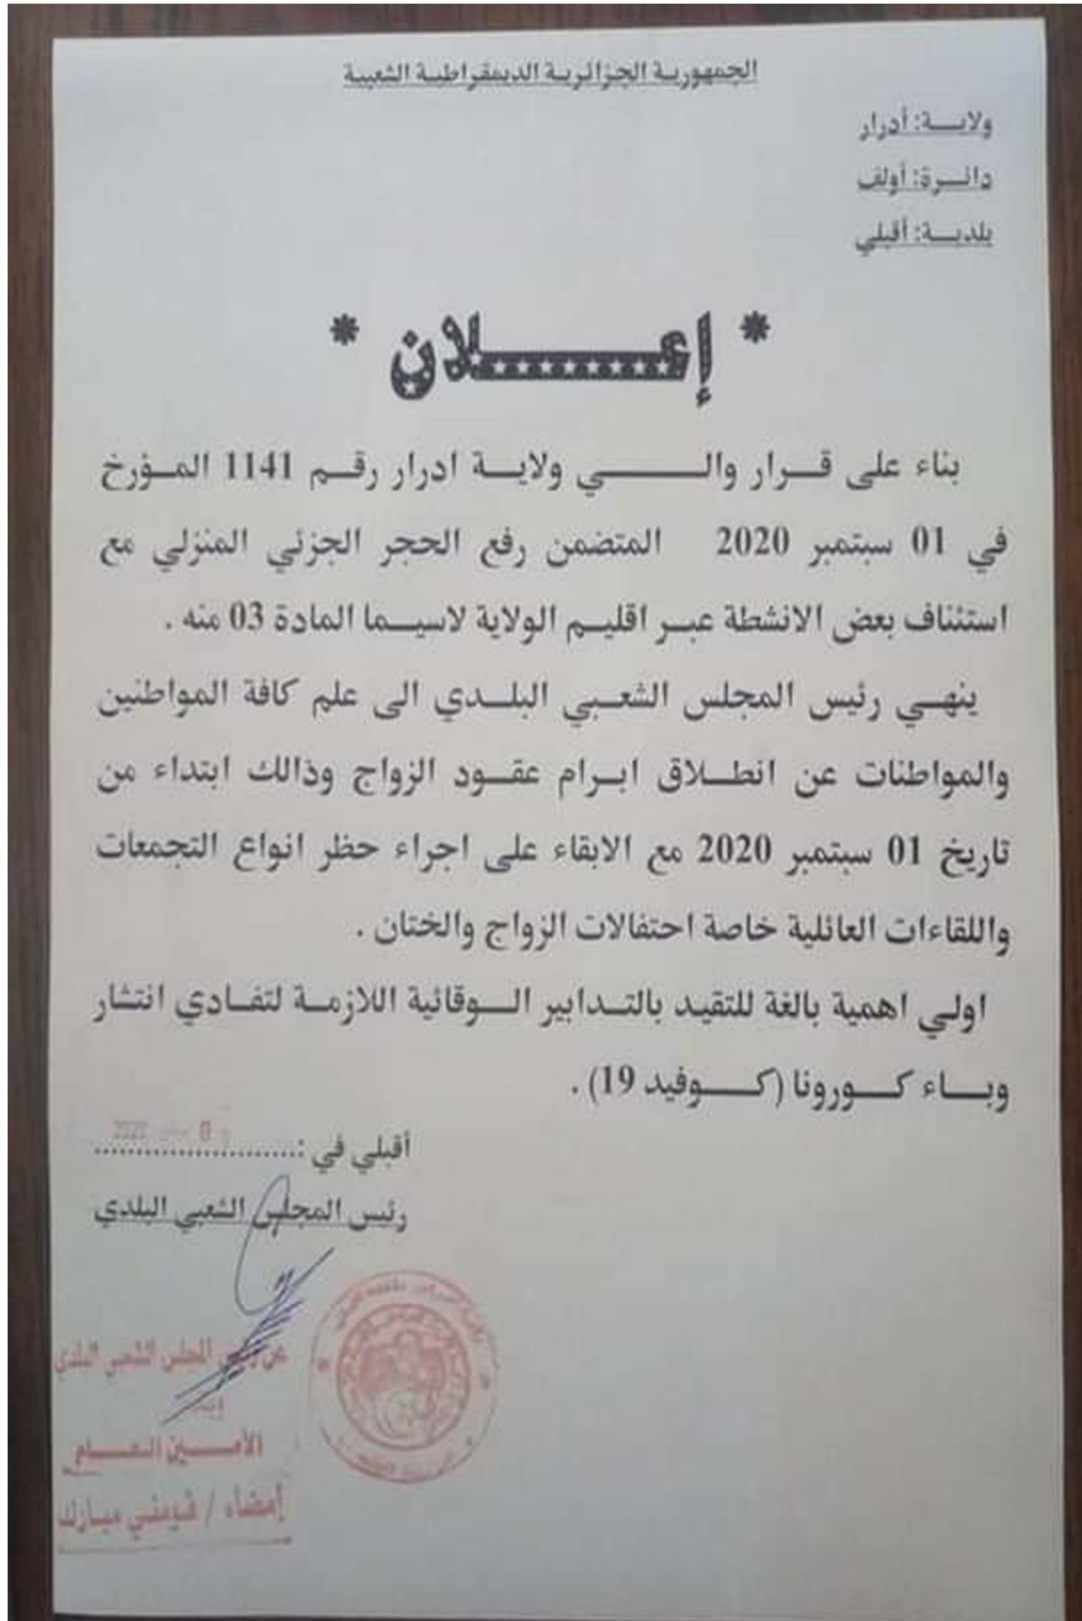 الجمهورية الجزائرية الديمقراطية الشعبية
ولاية: أدرار
دائرة: أولف
بلدية: أقبلي
* إعلان *
بناء على قرار والي ولاية ادرار رقم 1141 المؤرخ
في 01 سبتمبر 2020 المتضمن رفع الحجر الجزئي المنزلي مع
استئناف بعض الانشطة عبر اقليم الولاية لاسيما المادة 03 منه .
ينهي رئيس المجلس الشعبي البلدي الى علم كافة المواطنين
والمواطنات عن انطلاق ابرام عقود الزواج وذالك ابتداء من
تاريخ 01 سبتمبر 2020 مع الابقاء على اجراء حظر انواع التجمعات
واللقاءات العائلية خاصة احتفالات الزواج والختان .
اولي اهمية بالغة للتقيد بالتدابير الوقائية اللازمة لتفادي انتشار
وباء كورونا (كوفيد 19) .
أقبلي في :......................
رئيس المجلس الشعبي البلدي
عن رئيس المجلس الشعبي البلدي
الأمين العام
أمضاء / قومني مبارك